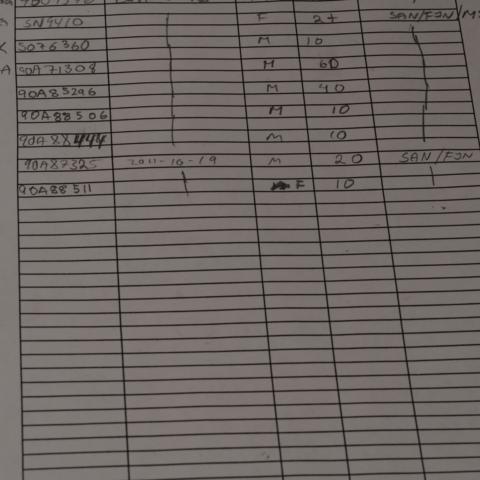 SN9410 F 2+ SAN/FJN/M
5076360 M 10
90A71308 M 60
90A85296 M 40
90A88506 M 10
90A88444 M 10
90A87325 2011-10-19 M 20 SAN/FJN
90A88511 F 10